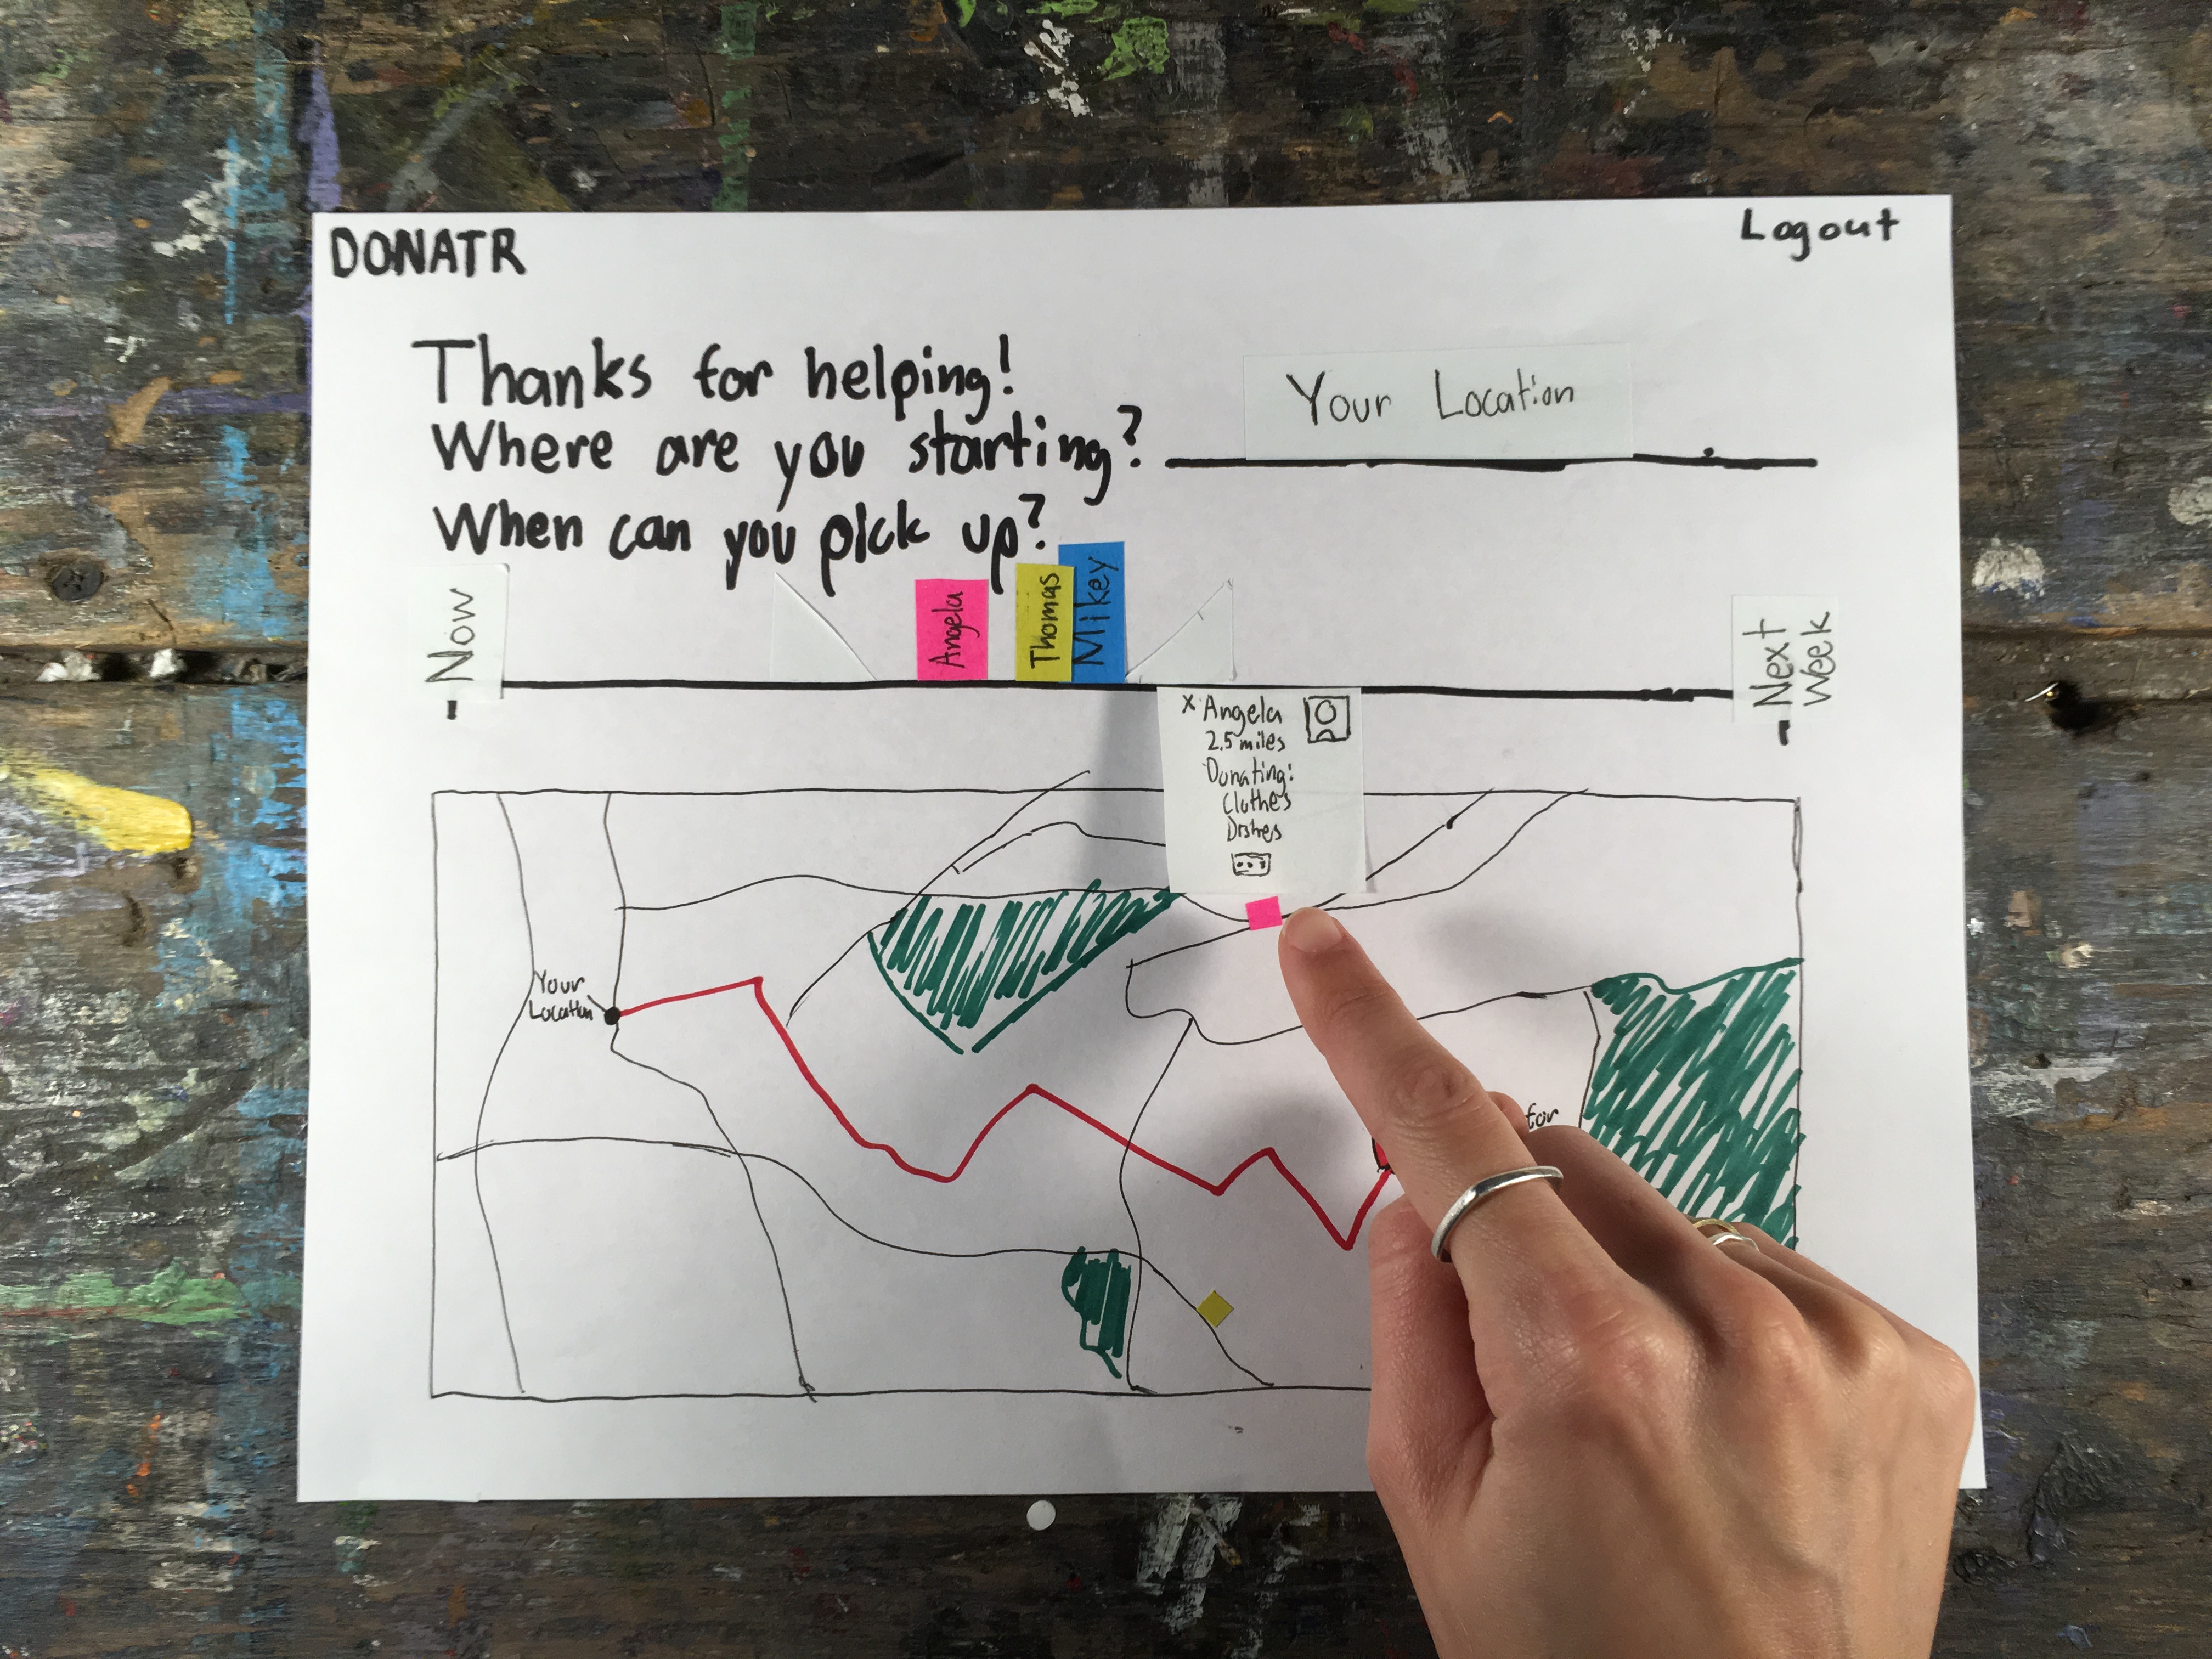 DONATR
Logout
Thanks for helping!
Where are you starting?
Your Location
When can you pick up?
Now
Angela
Thomas
Mikey
Next
Week
x Angela
2.5 miles
Donating:
Clothes
Dishes
Your
Location